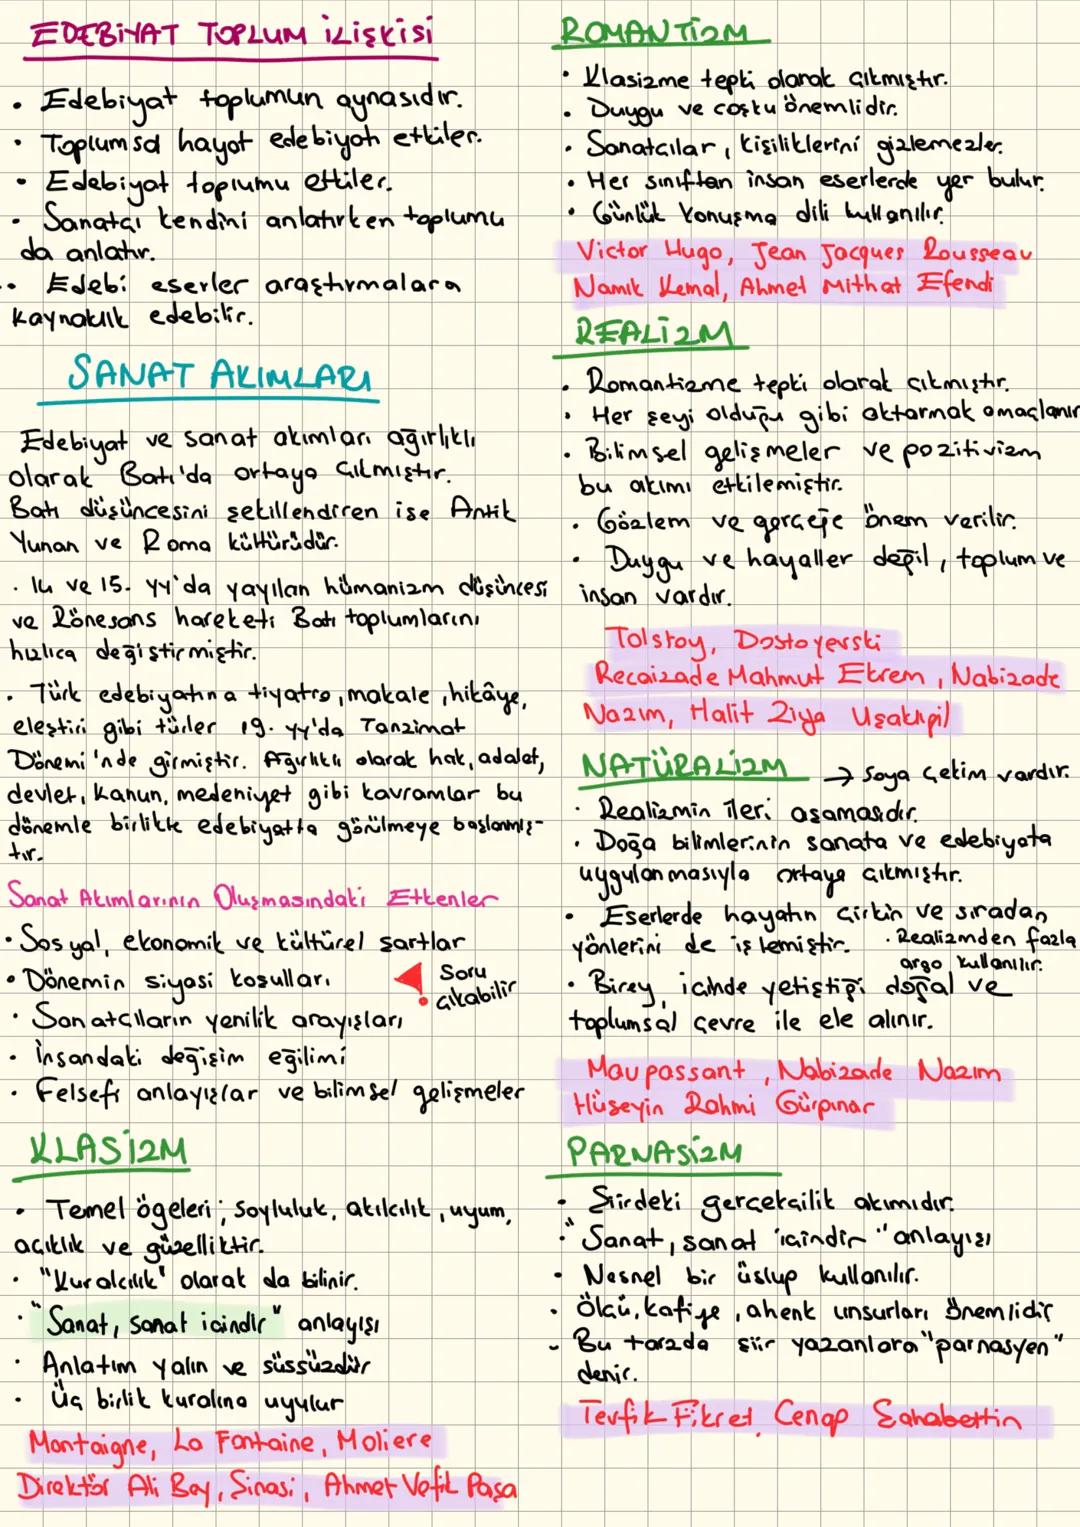 EDEBİYAT TOPLUM İLİŞKİSİ
• Edebiyat toplumun aynasıdır.
• Toplumsal hayat edebiyatı etkiler.
• Edebiyat toplumu etkiler.
• Sanatçı kendini anlatırken toplumu
da anlatır.
• Edebi eserler araştırmalara
kaynaklık edebilir.
SANAT AKIMLARI
Edebiyat ve sanat akımları ağırlıklı
olarak Batı'da ortaya çıkmıştır.
Batı düşüncesini şekillendiren ise Antik
Yunan ve Roma kültürüdür.
• 14 ve 15. yy'da yayılan hümanizm düşüncesi
ve Rönesans hareketi Batı toplumlarını
hızlıca değiştirmiştir.
• Türk edebiyatına tiyatro, makale, hikâye,
eleştiri gibi türler 19. yy'da Tanzimat
Dönemi'nde girmiştir. Ağırlıklı olarak hak, adalet,
devlet, kanun, medeniyet gibi kavramlar bu
dönemle birlikte edebiyatta görülmeye başlanmış-
tır.
Sanat Akımlarının Oluşmasındaki Etkenler
• Sosyal, ekonomik ve kültürel şartlar
• Dönemin siyasi koşulları
Soru
çıkabilir
• Sanatçıların yenilik arayışları
• İnsandaki değişim eğilimi
• Felsefi anlayışlar ve bilimsel gelişmeler
KLASİZM
• Temel ögeleri; soyluluk, akılcılık, uyum,
açıklık ve güzelliktir.
• "Kuralcılık" olarak da bilinir.
• "Sanat, sanat içindir" anlayışı
• Anlatım yalın ve süssüzdür
• Üç birlik kuralına uyulur
Montaigne, La Fontaine, Moliere
Direktör Ali Bey, Şinasi, Ahmet Vefik Paşa
ROMANTİZM
• Klasizme tepki olarak çıkmıştır.
• Duygu ve coşku önemlidir.
• Sanatçılar, kişiliklerini gizlemezler.
• Her sınıftan insan eserlerde yer bulur.
• Günlük konuşma dili kullanılır.
Victor Hugo, Jean Jacques Rousseau
Namık Kemal, Ahmet Mithat Efendi
REALİZM
• Romantizme tepki olarak çıkmıştır.
• Her şeyi olduğu gibi aktarmak amaçlanır
• Bilimsel gelişmeler ve pozitivizm
bu akımı etkilemiştir.
• Gözlem ve gerçeğe önem verilir.
• Duygu ve hayaller değil, toplum ve
insan vardır.
Tolstoy, Dostoyevski
Recaizade Mahmut Ekrem, Nabizade
Nazım, Halit Ziya Uşaklıgil
NATÜRALİZM → Soya çekim vardır.
• Realizmin ileri aşamasıdır.
• Doğa bilimlerinin sanata ve edebiyata
uygulanmasıyla ortaya çıkmıştır.
• Eserlerde hayatın çirkin ve sıradan
yönlerini de işlemiştir.
• Realizmden fazla
argo kullanılır.
• Birey, içinde yetiştiği doğal ve
toplumsal çevre ile ele alınır.
Maupassant, Nabizade Nazım
Hüseyin Rahmi Gürpınar
PARNASİZM
• Şiirdeki gerçekçilik akımıdır.
• "Sanat, sanat içindir" anlayışı
• Nesnel bir üslup kullanılır.
• Ölçü, kafiye, ahenk unsurları önemlidir
• Bu tarzda şiir yazanlara "parnasyen"
denir.
Tevfik Fikret, Cenap Şahabettin